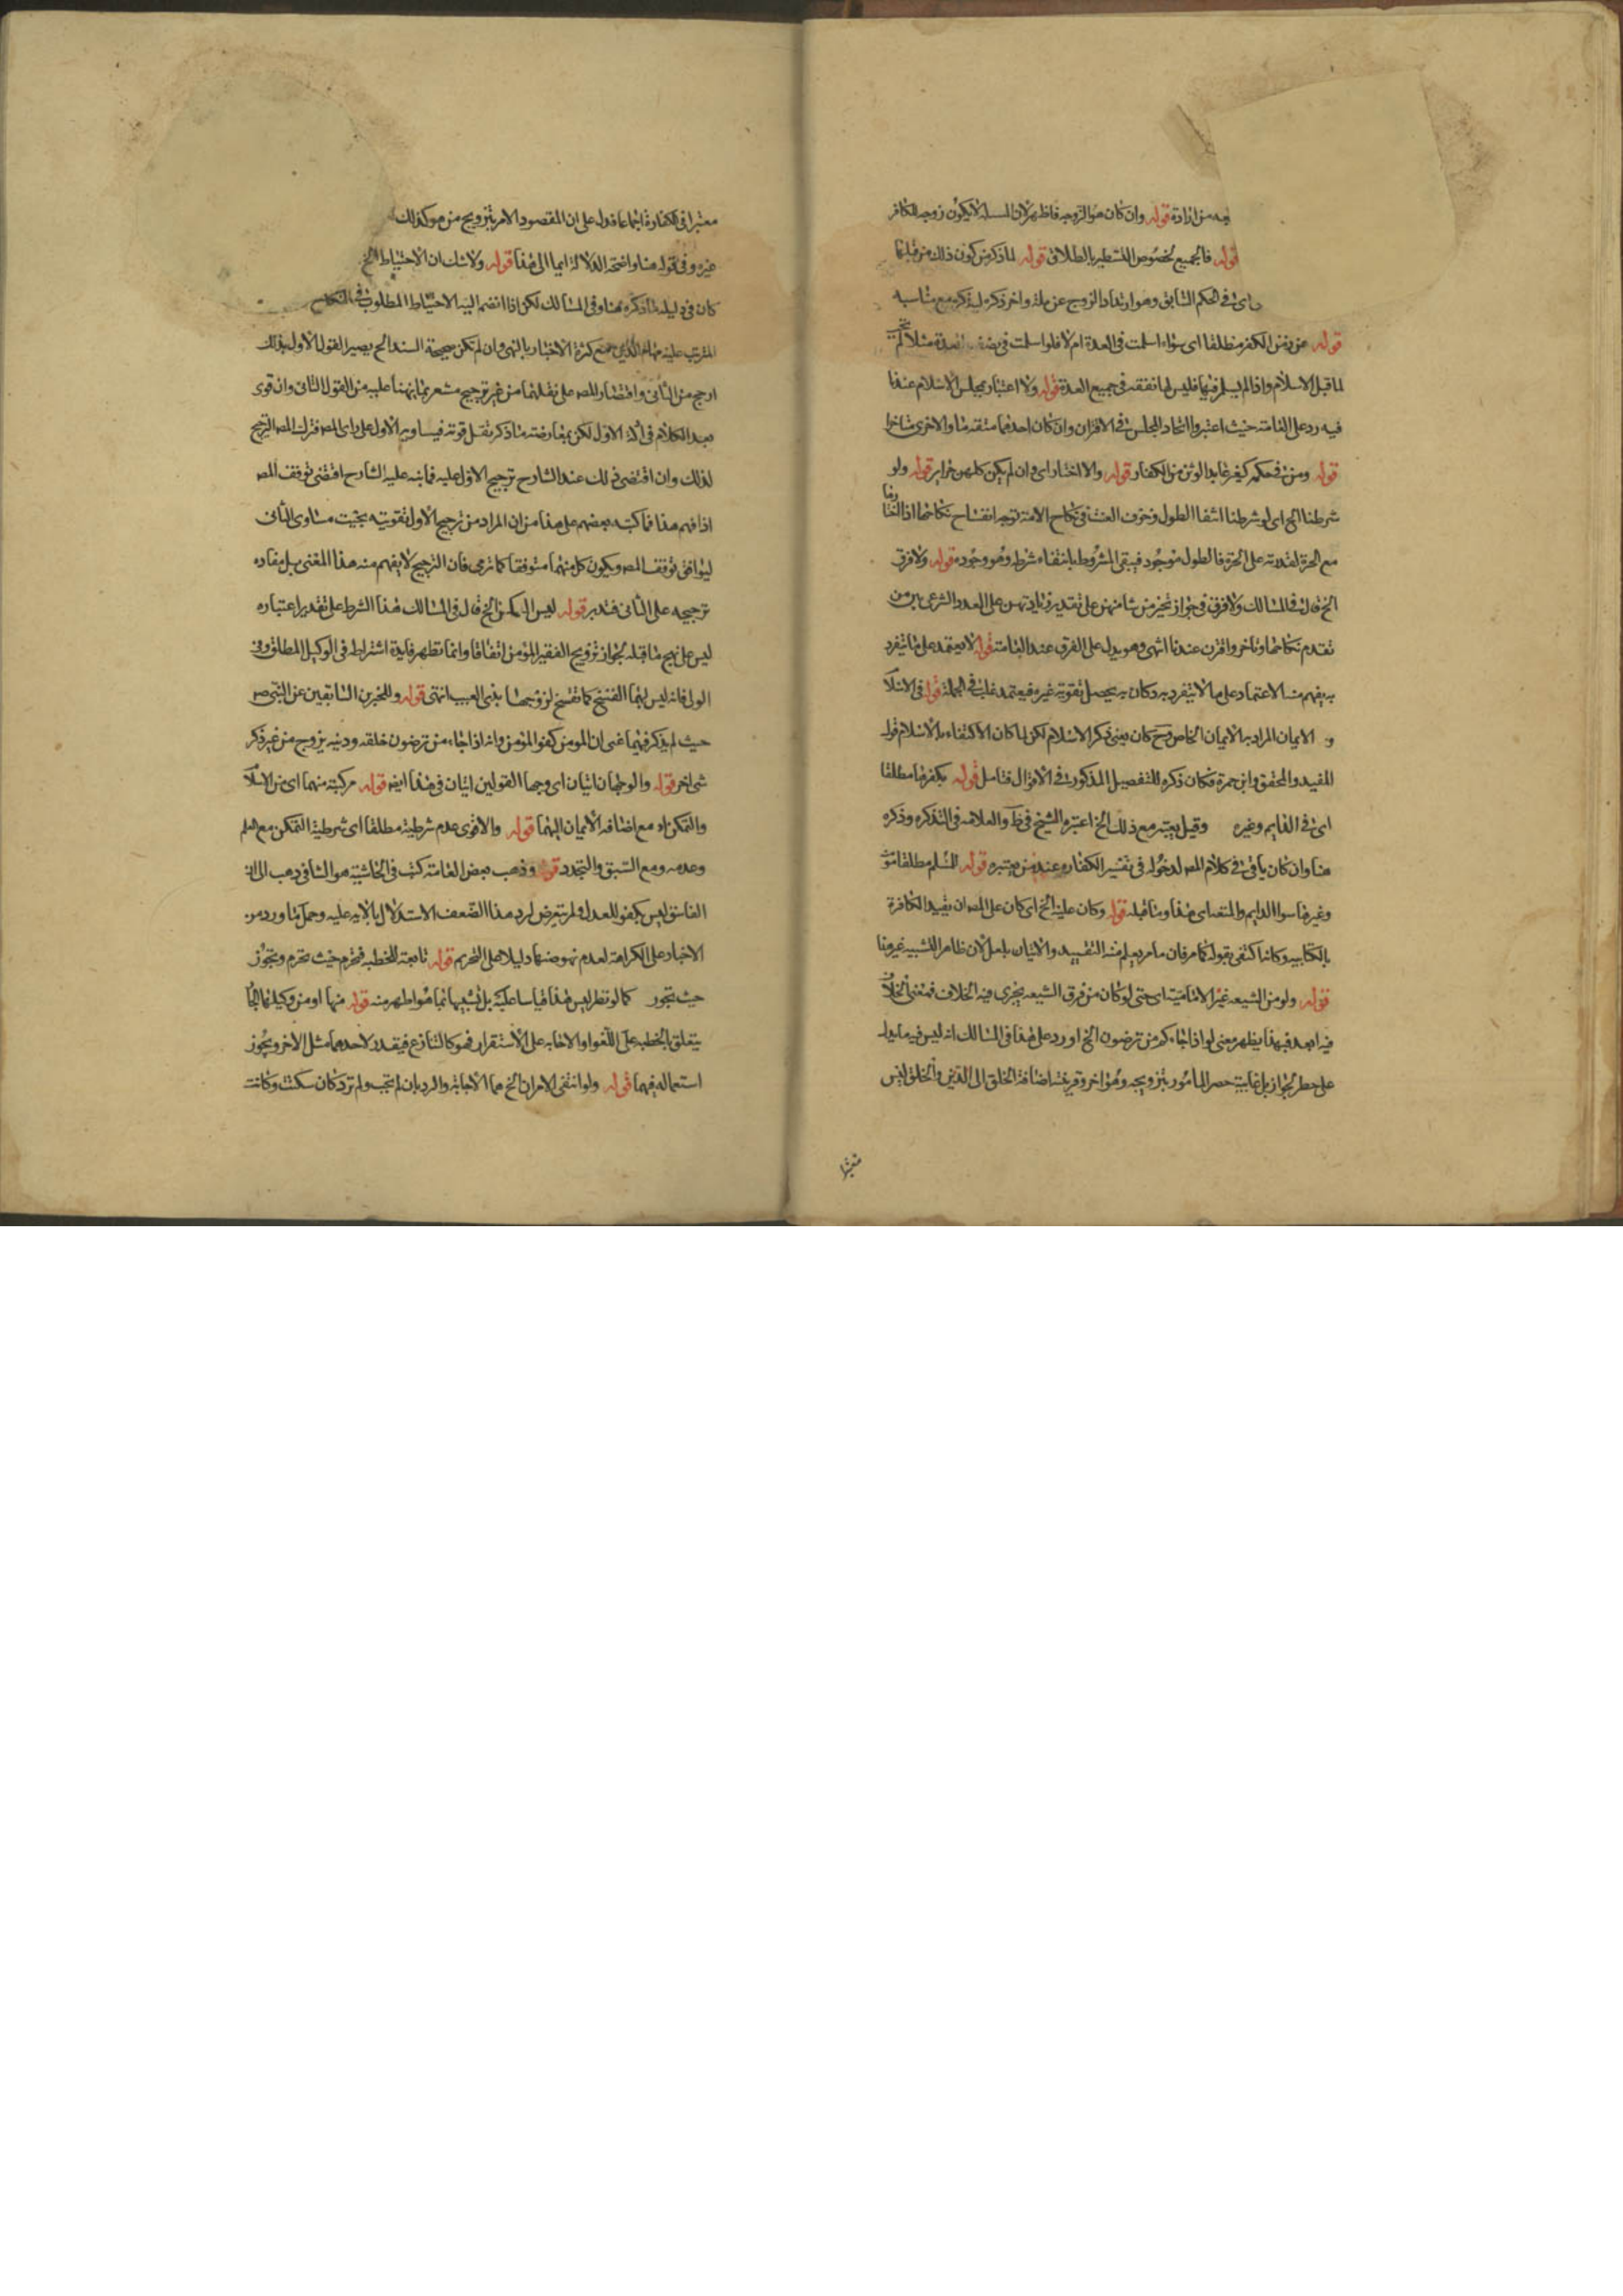 بعد من ارادة قوله وان كان هو الزوجه فاظهر لان المسلم لا يكون زوجه الكافر
قوله فالجميع لخصوص التشطير بالطلاق قوله لما ذكر من كون ذلك من قبلها
اى فى الحكم السابق وهو ارتداد الزوج عن ملة واخر ذكره ليذكره مع مناسبه
قوله عن بعض الكفر مطلقا اى سواء اسلمت فى العدة ام لا فلو اسلمت فى العدة مثلا لم
لما قبل الاسلام واذا لم يسلم فيها فليس لها نفقه فى جميع العدة قوله ولا اعتبار بمجلس الاسلام عندنا
فيه رد على العامة حيث اعتبروا اتحاد المجلس فى الاقتران وان كان احدهما متقدما والاخرى متاخرا
قوله ومن فى حكمه كغير عابد الوثن من الكفار قوله والا اختار اى وان لم يكن كلهن حراير قوله ولو
شرطنا الخ اى لو شرطنا انتفا الطول وخوف العنت فى نكاح الامة توجه انفساخ نكاحها اذا
مع الحرة لقدرته على الحرة فالطول موجود فيبقى المشروط بانتفاء شرطه وهو وجوده قوله ولا فرق
الخ قال فى المسالك ولا فرق فى جواز تخير من شا منهن على تقدير زيادتهن على العدد الشرعى بين من
تقدم نكاحها وتاخر واقترن عندنا انتهى وهو يدل على الفرق عند العامة قوله لا يعتمد على ما يتفرد
به يفهم منه الاعتماد على ما لا يتفرد به وكان به يحصل تقويته غيره فيعتمد غالبا فى الجملة قوله فى الاسلام
و الايمان المراد به الايمان الخاص كان يعنى ذكر الاسلام لكن لما كان الاكتفاء بالاسلام قول
المفيد والمحقق وابن حمزة فكان ذكره للتفصيل المذكور فى الاقوال فتامل قوله بكفرها مطلقا
اى فى الدايم وغيره وقيل يعتبر مع ذلك الخ اعتبره الشيخ فى ط والعلامه فى التذكره وذكره
هنا وان كان ياتى فى كلام المصـ لدخوله فى تفسير الكفاره عند من يعتبره قوله للمسلم مطلقا
وغيرها سوا الدايم والمتعه اى هنا وما قبله قوله وكان عليه الخ اى كان على المصـ ان يقيد الكافرة
بالكتابيه وكانه اكتفى بقوله كما مر فان ما مر يعلم منه التقييد والاتيان بلعل لان ظاهر التشبيه غير هنا
قوله ولو من الشيعه غير الاماميه اى حتى لو كان من فرق الشيعه يجرى فيه الخلاف فمعنى الخلاف
فيه ابعد فبهذا يظهر معنى لو اذا جاءكم من ترضون الخ اورد على هذا فى المسالك انه ليس فيه ما يدل
على حظر الجواز بل غايته حصر المامور بتزويجه وهو اخر وقرينته اضافة الخلق الى الدين والخلق ليس
معتبرا
معتبرا فى الكفارة اجماعا فدل على ان المقصود الامر بتزويج من هو كذلك
غيره وفى قوله هنا واضحة الدلالة ايما الى هذا قوله ولا شك ان الاحتياط الخ
كان فى دليله ما ذكره هنا وفى المسالك لكن اذا انضم اليه الاحتياط المطلوب فى النكاح
المترتب عليه مهام الدين مع كثرة الاخبار بالنهى وان لم تكن صحيحة السند الخ يصير القول الاول بذلك
ارجح من الثانى واقتصار المصـ على نقلهما من غير ترجيح مشعر بما نبهنا عليه من القول الثانى وان قوى
بعد الكلام فى ادلة الاول لكن بمعارضته ما ذكر تقل قوته فيساويه الاول على راى المصـ فترك المصـ الترجيح
لذلك وان اقتضى ذلك عند الشارح ترجيح الاول عليه فما نبه عليه الشارح اقتضى توقف المصـ
اذا فهم هذا فما كتبه بعضهم على هذا من ان المراد من ترجيح الاول تقويته بحيث مساوى الثانى
ليوافق توقف المصـ ويكون كل منهما متوقفا كما ترى فان الترجيح لا يفهم منه هذا المعنى بل مفاده
ترجيحه على الثانى فتدبر قوله ليس التمكن الخ قال فى المسالك هذا الشرط على تقدير اعتباره
ليس على نهج ما قبله لجواز تزويج الفقير المؤمن اتفاقا وانما تظهر فايدة اشتراطه فى الوكيل المطلق وفى
الولى فانه ليس لهما الفسخ كما تفسخ لزوجها بذى العيب انتهى قوله وللخبرين السابقين عن النبى ص
حيث لم يذكر فيهما غنى ان المومن كفو المؤمن وانه اذا جاء من ترضون خلقه ودينه يزوج من غير ذكر
شى اخر قوله والوجهان اتيان اى وجها القولين اتيان فى هذا ايض قوله مركبة منهما اى من الاسلام
والتمكن او مع اضافة الايمان اليهما قوله والاقوى عدم شرطيته مطلقا اى شرطية التمكن مع العلم
وعدمه ومع السبق والتجدد قوله وذهب بعض العامة كتب فى الحاشية هو الشافى ذهب الى ان
الفاسق ليس بكفو للعدل ولم يتعرض لرد هذا الضعف الاستدلال بالاية عليه وحمل ما ورد من
الاخبار على الكراهة لعدم نهوضها دليلا على التحريم قوله تابعة للخطبه فتحرم حيث تحرم وتجوز
حيث تجوز كما لو نظر ليس هذا قياسا عليه بل تشبيها بما هو اظهر منه قوله منها او من وكيلها الجا
يتعلق بالخطبه على اللغوا والاجابه على الاستقرار فهو كالتنازع فيقدر لاحدهما مثل الاخر ويجوز
استعماله فيهما قوله ولو انتفى الامران الخ هما الاجابة والرد بان لم تجب ولم ترد كان سكتت وكانت